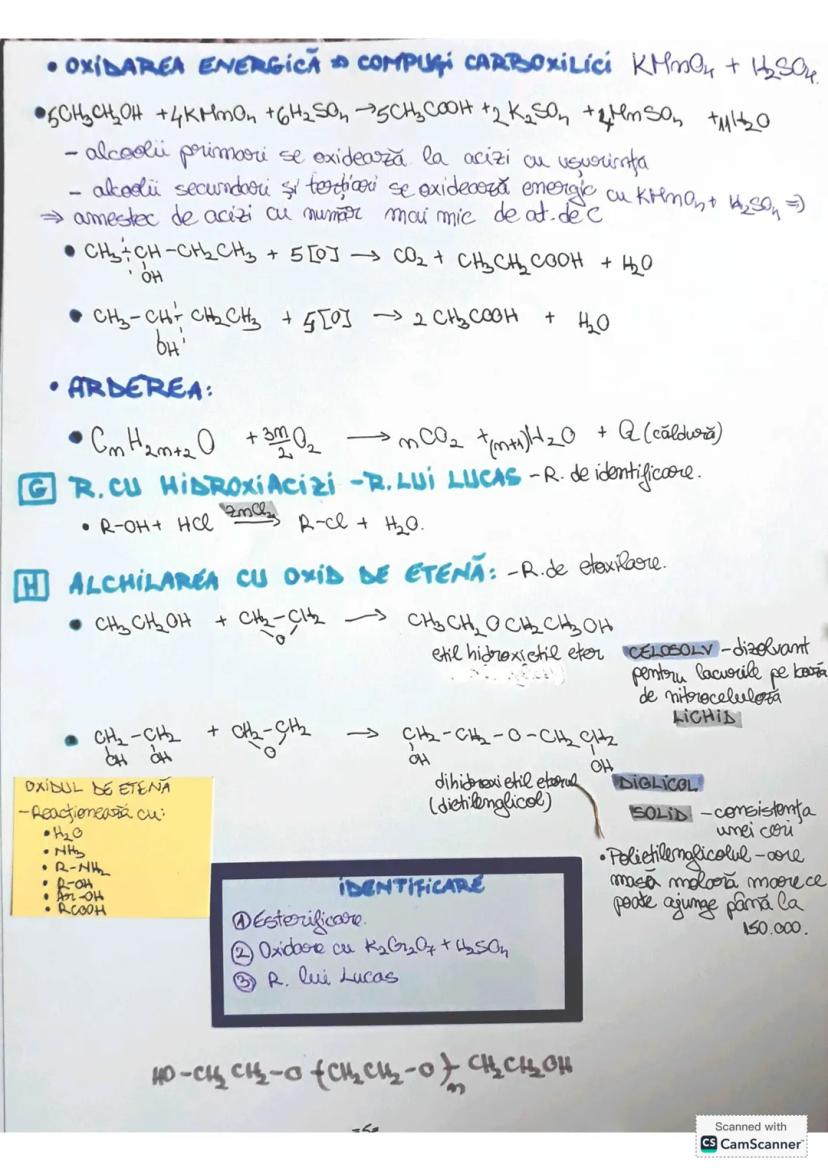 • OXIDAREA ENERGICĂ ⇒ COMPUȘI CARBOXILICI KMnO₄ + H₂SO₄
• 5CH₃CH₂OH + 4KMnO₄ + 6H₂SO₄ → 5CH₃COOH + 2K₂SO₄ + 4MnSO₄ + 11H₂O
- alcoolii primari se oxidează la acizi cu ușurință
- alcolii secundari și terțiari se oxidează energic cu KMnO₄ + H₂SO₄ ⇒
⇒ amestec de acizi cu număr mai mic de at. de C
• CH₃-CH-CH₂CH₃ + 5[O] → CO₂ + CH₃CH₂COOH + H₂O
OH
• CH₃-CH-CH₂CH₃ + 5[O] → 2CH₃COOH + H₂O
OH
• ARDEREA:
• CₙH₂ₙ₊₂O + 3n/2 O₂ → nCO₂ + (n+1)H₂O + Q (căldură)
G R. CU HIDROXIACIZI - R. LUI LUCAS - R. de identificare.
• R-OH + HCl ZnCl₂ → R-Cl + H₂O.
H ALCHILAREA CU OXID DE ETENĂ: - R. de etoxilare.
• CH₃CH₂OH + CH₂-CH₂ → CH₃CH₂OCH₂CH₃OH
O
etil hidroxietil eter CELOSOLV - dizolvant
pentru lacurile pe bază
de nitroceluloză
LICHID
• CH₂-CH₂ + CH₂-CH₂ → CH₂-CH₂-O-CH₂CH₂
OH OH O OH OH
dihidroxietil eterul DIGLICOL
(dietilenglicol) SOLID - consistența
unei ceri
• Polietilenglicolul - are
masă molară mare ce
poate ajunge până la
150.000.
OXIDUL DE ETENĂ
- Reacționează cu:
• H₂O
• NH₃
• R-NH₂
• R-OH
• Ar-OH
• RCOOH
IDENTIFICARE
① Esterificare.
② Oxidare cu K₂Cr₂O₇ + H₂SO₄
③ R. lui Lucas
HO-CH₂CH₂-O-(CH₂CH₂-O)ₙ-CH₂CH₂OH
Scanned with
CS CamScanner